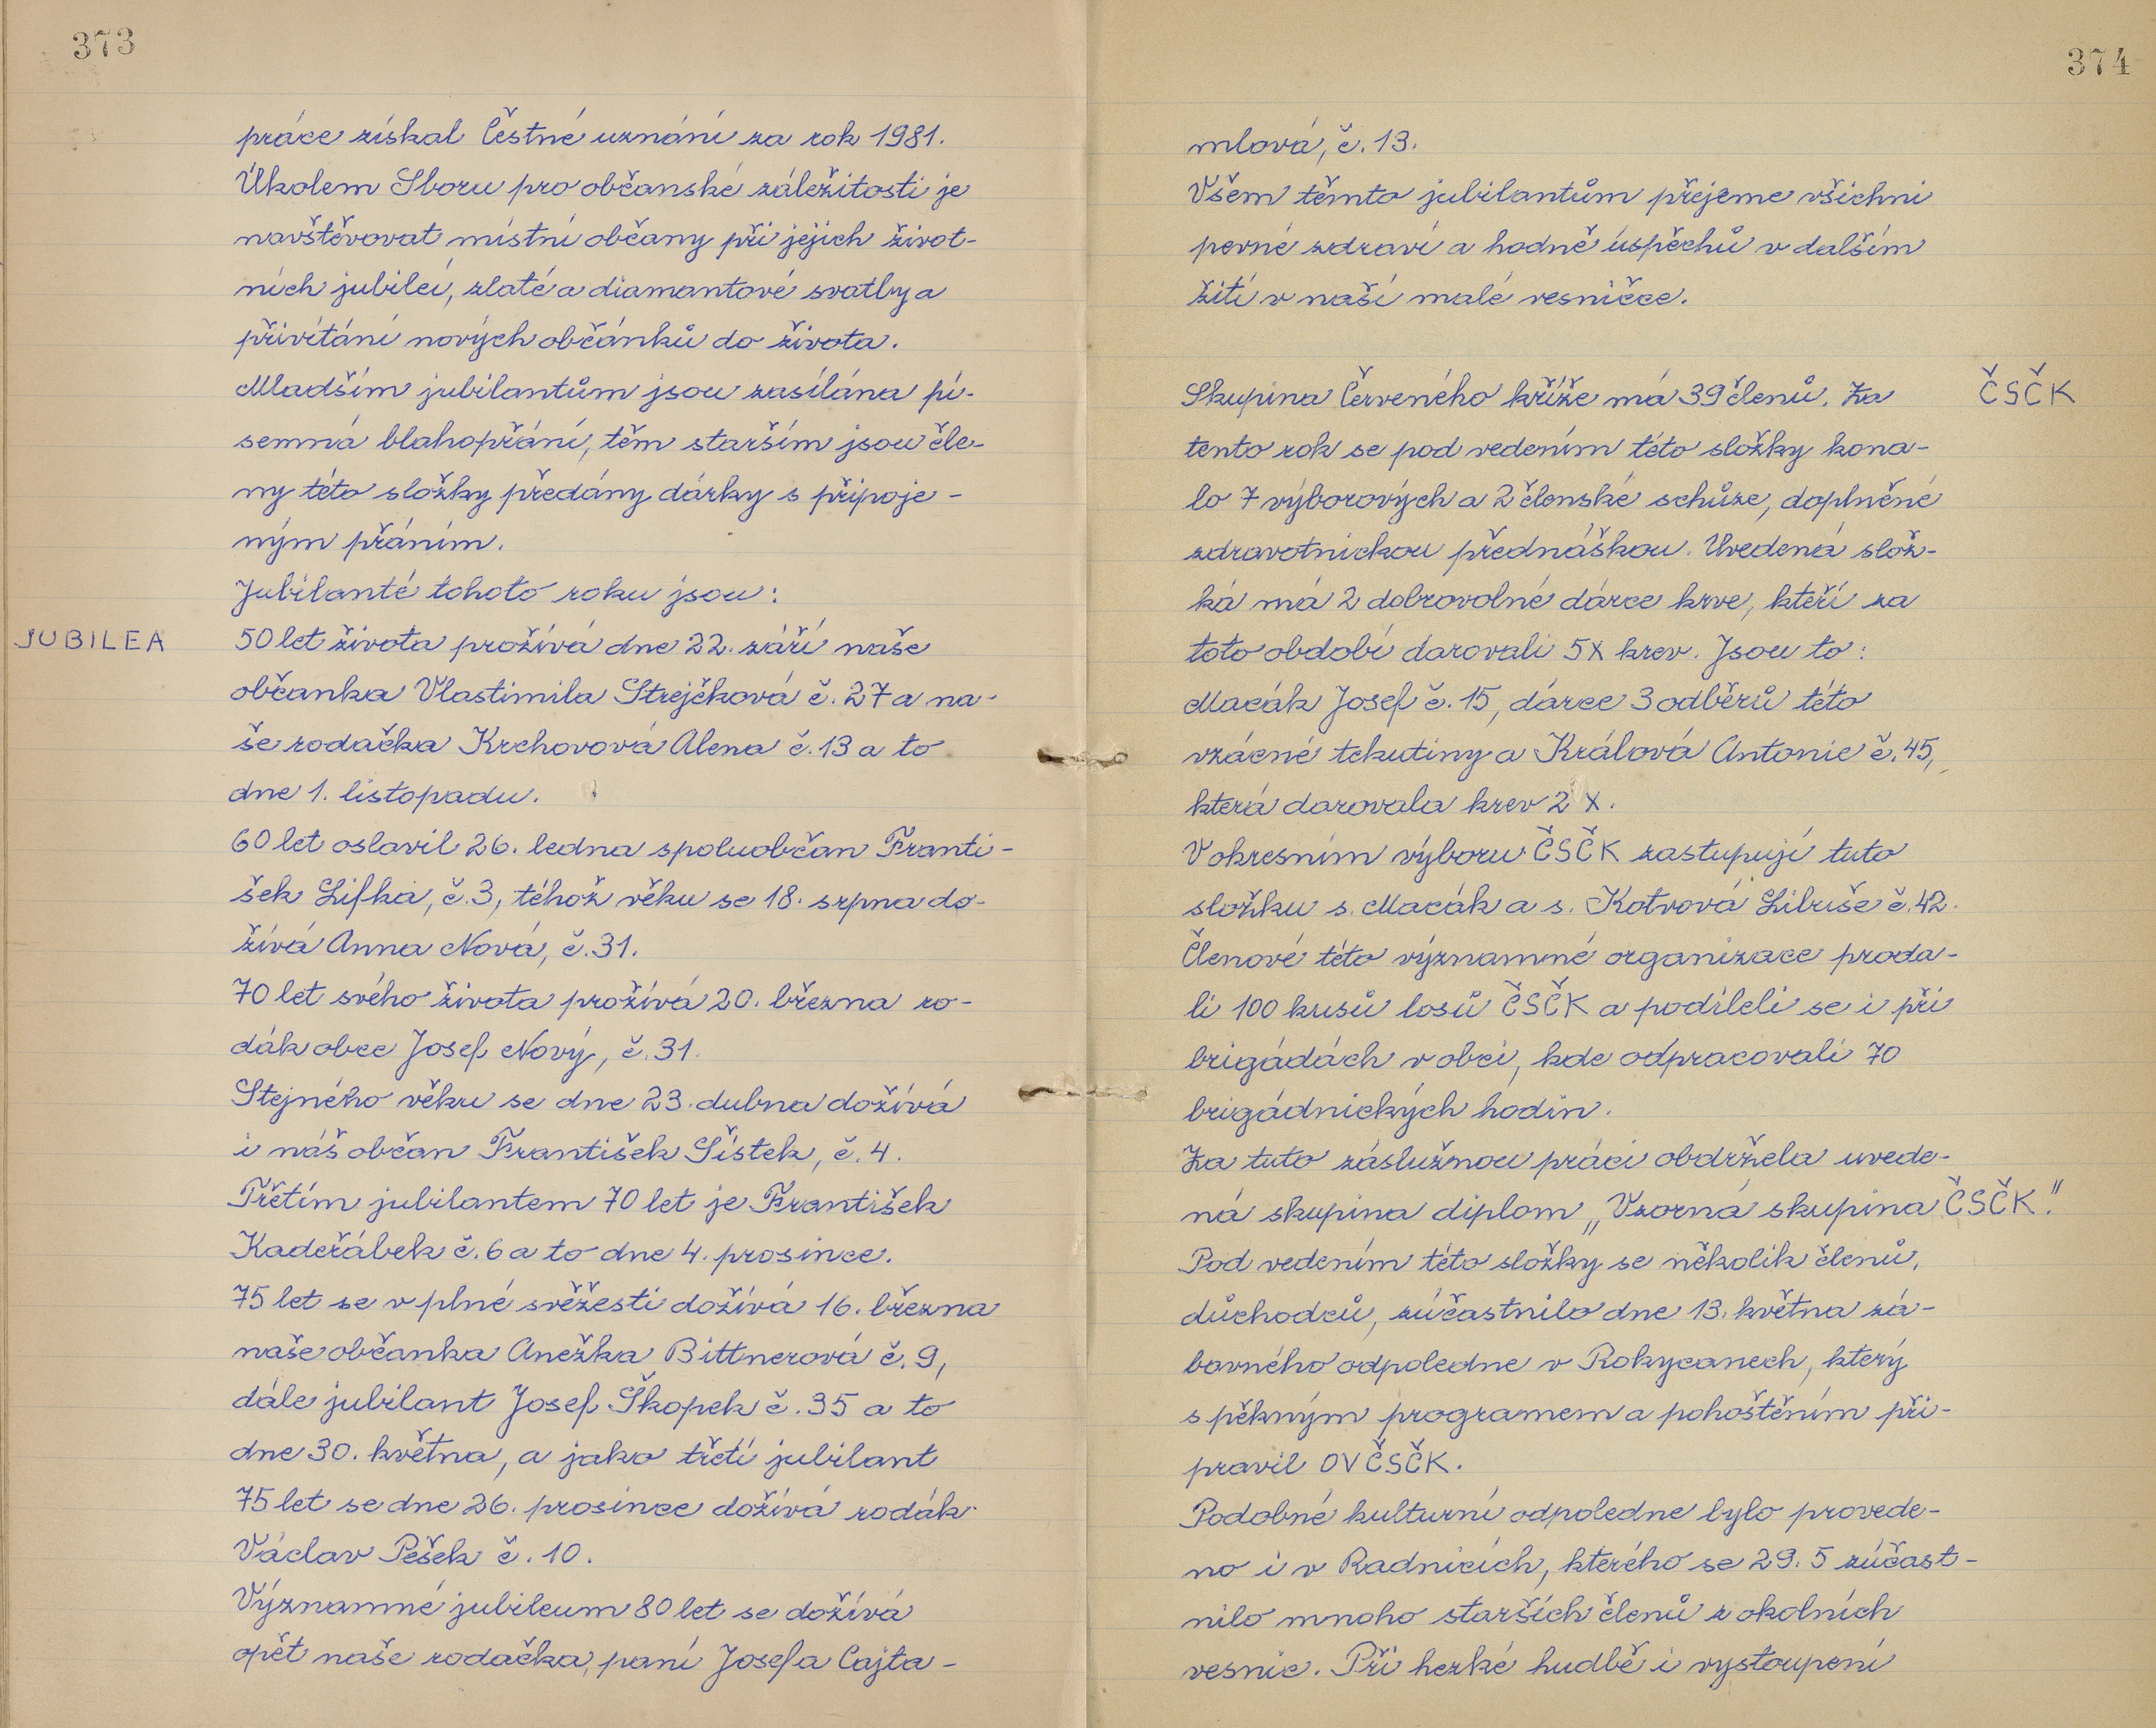 373
práce získal Čestné uznání za rok 1981.
Úkolem Sboru pro občanské záležitosti je
navštěvovat místní občany při jejich život-
ních jubileí, zlaté a diamantové svatby a
přivítání nových občánků do života.
Mladším jubilantům jsou zasílána pí-
semná blahopřání, těm starším jsou čle-
ny této složky předány dárky s připoje-
ným přáním.
Jubilanté tohoto roku jsou:
JUBILEA
50 let života prožívá dne 22. září naše
občanka Vlastimila Strejčková č. 27 a na-
še rodačka Krchovová Alena č. 13 a to
dne 1. listopadu.
60 let oslavil 26. ledna spoluobčan Franti-
šek Lifka, č. 3, téhož věku se 18. srpna do-
žívá Anna Nová, č. 31.
70 let svého života prožívá 20. března ro-
dák obce Josef Nový, č. 31.
Stejného věku se dne 23. dubna dožívá
i náš občan František Šístek, č. 4.
Třetím jubilantem 70 let je František
Kadeřábek č. 6 a to dne 4. prosince.
75 let se v plné svěžesti dožívá 16. března
naše občanka Anežka Bittnerová č. 9,
dále jubilant Josef Škopek č. 35 a to
dne 30. května, a jako třetí jubilant
75 let se dne 26. prosince dožívá rodák
Václav Pešek č. 10.
Významné jubileum 80 let se dožívá
opět naše rodačka, paní Josefa Cajta-
374
mlová, č. 13.
Všem těmto jubilantům přejeme všichni
pevné zdraví a hodně úspěchů v dalším
žití v naší malé vesničce.
Skupina Červeného kříže má 39 členů. Za
ČSČK
tento rok se pod vedením této složky kona-
lo 7 výborových a 2 členské schůze, doplněné
zdravotnickou přednáškou. Uvedená slož-
ká má 2 dobrovolné dárce krve, kteří za
toto období darovali 5x krev. Jsou to:
Macák Josef č. 15, dárce 3 odběrů této
vzácné tekutiny a Králová Antonie č. 45,
která darovala krev 2 x.
V okresním výboru ČSČK zastupují tuto
složku s. Macák a s. Kotvová Libuše č. 42.
Členové této významné organizace proda-
li 100 kusů losů ČSČK a podíleli se i při
brigádách v obci, kde odpracovali 70
brigádnických hodin.
Za tuto záslužnou práci obdržela uvede-
ná skupina diplom „Vzorná skupina ČSČK."
Pod vedením této složky se několik členů,
důchodců, zúčastnilo dne 13. května zá-
bavného odpoledne v Rokycanech, který
s pěkným programem a pohoštěním při-
pravil OV ČSČK.
Podobné kulturní odpoledne bylo provede-
no i v Radnicích, kterého se 29. 5 zúčast-
nilo mnoho starších členů z okolních
vesnic. Při hezké hudbě i vystoupení